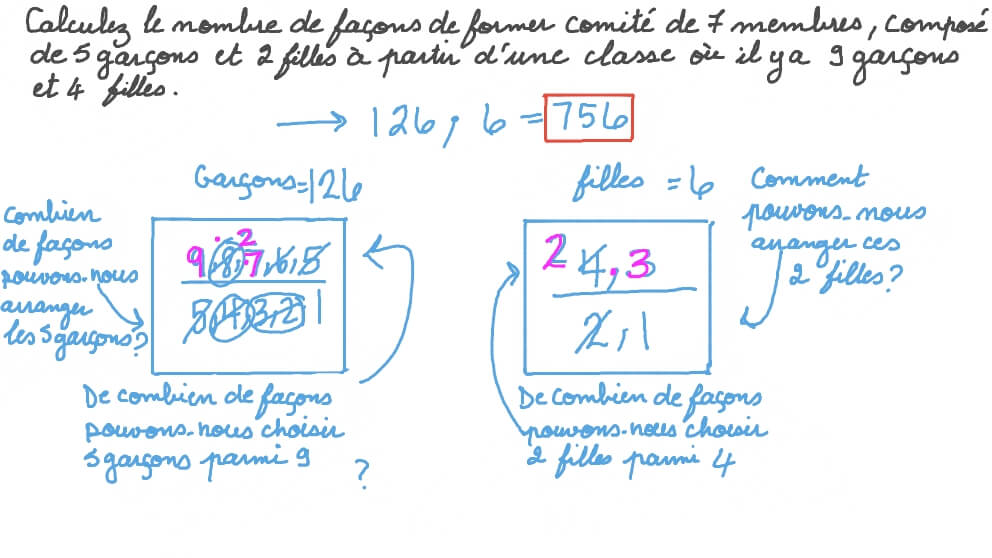 Calculez le nombre de façons de former comité de 7 membres, composé
de 5 garçons et 2 filles à partir d'une classe où il y a 9 garçons
et 4 filles.
→ 126, 6 = 756
Garçons = 126
filles = 6
Combien
de façons
pouvons-nous
arranger
les 5 garçons?
9.8,7,6,5
2
5,4,3,2.1
De combien de façons
pouvons-nous choisir
5 garçons parmi 9
?
2 4.3
2,1
Comment
pouvons-nous
arranger ces
2 filles?
De combien de façons
pouvons-nous choisir
2 filles parmi 4